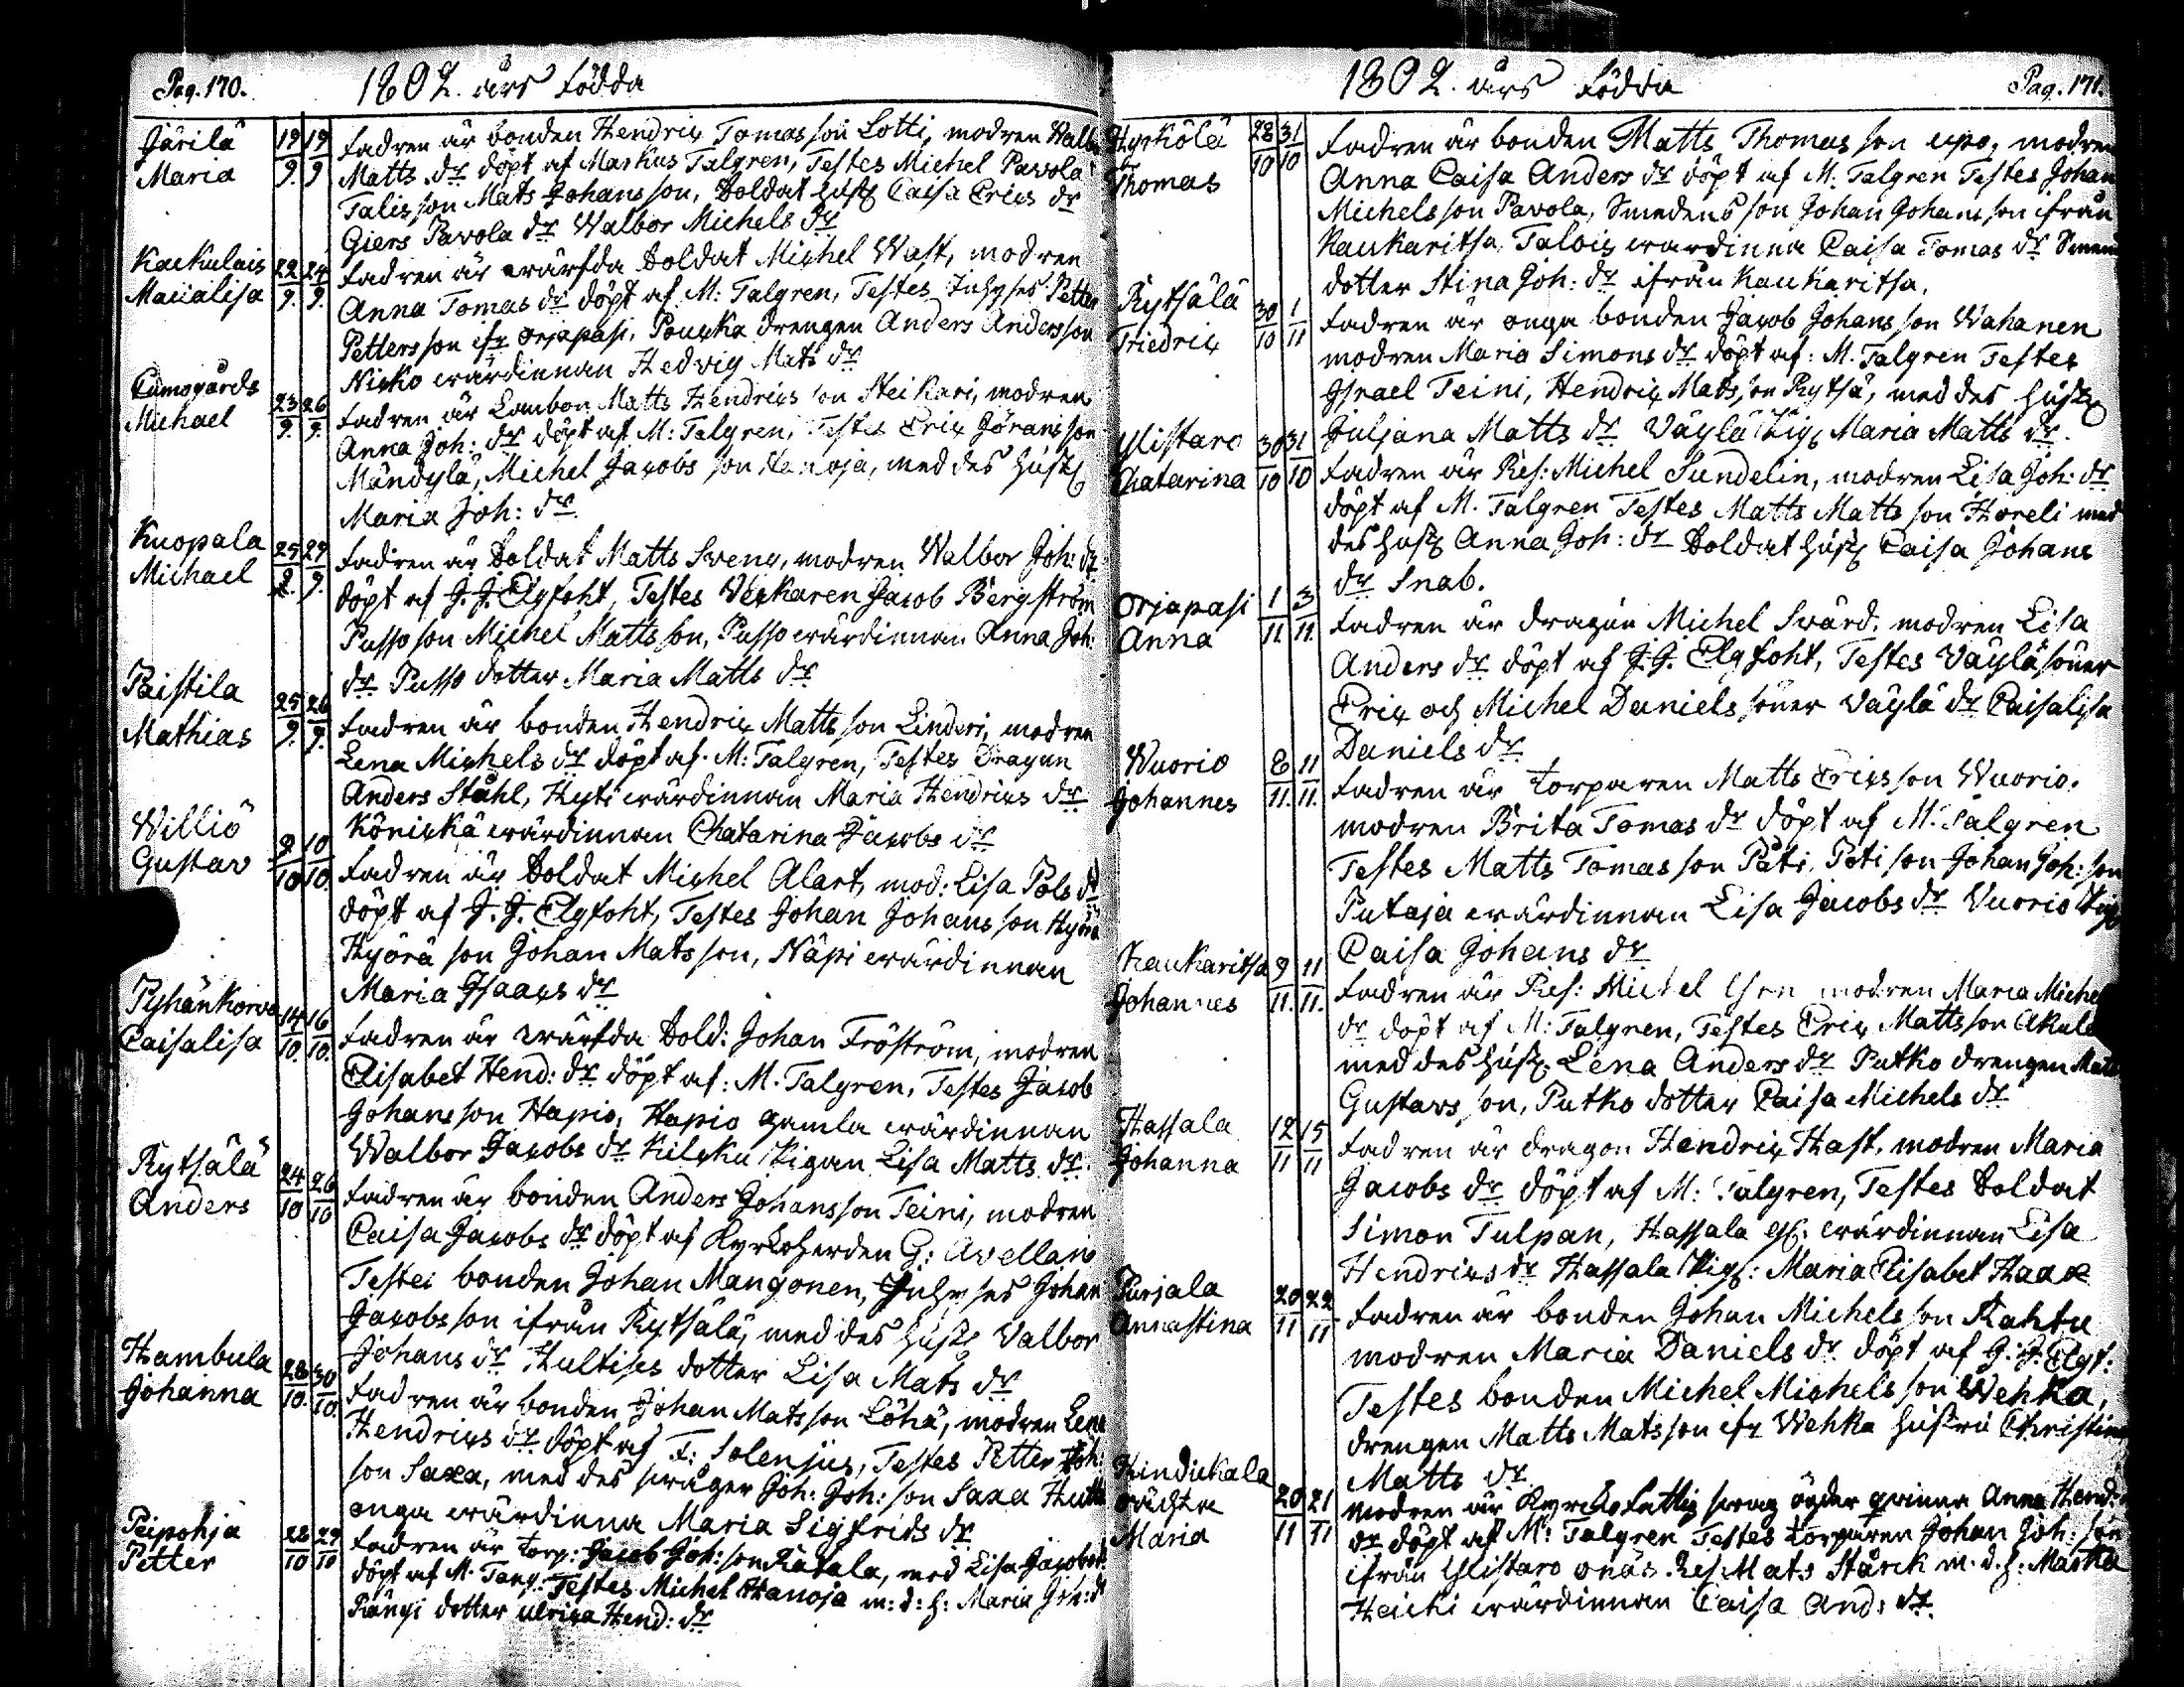 Pag. 170.
1802. års Födda
Järilä
Maria
19 19
9. 9
Fadren är bonden Hendric Tomas son Lotti, modren Walb
Matts dr döpt af Markus Talgren, Testes Michel Pavola
Talis son Mats Johans son, Soldat hust Caisa Erics dr
Giers Pavola dr Walbor Michels dr
Kaukulais
Maiialisa
22 24
9. 9.
Fadren är wärfda Soldat Michel Wast, modren
Anna Tomas dr döpt af M: Talgren, Testes Inhyses Petter
Petters son ifr Orjapasi, Poucka drengen Anders Andersson
Nicko wärdinnan Hedvig Mats dr
Cumogårds
Michael
23 26
9. 9.
Fadren är Lambon Matts Hendrics son Steikari, modren
Anna Joh: dr döpt af M: Talgren, Testes Eric Görans son
Mändylä, Michel Jacobs son Hanoja, med des hust
Maria Joh: dr
Kuopala
Michael
25 27
9. 9.
Fadren är Soldat Matts Sveng, modren Walbor Joh: dr
döpt af J. J. Elgfoht, Testes Veckaren Jacob Bergström
Pusso son Michel Matts son, Pusso wärdinnan Anna Joh:
dr Pusso dotter Maria Matts dr
Paistila
Mathias
25 26
9. 9.
Fadren är bonden Hendric Matts son Linderi, modren
Lena Michels dr döpt af. M: Talgren, Testes Dragun
Anders Ståhl, Hyti wärdinnan Maria Hendrics dr
Könickä wärdinnan Chatarina Jacobs dr
Williö
Gustav
9 10
10 10.
Fadren är Soldat Michel Alart, mod: Lisa Pols dr
döpt af J. J. Elgfoht, Testes Johan Johans son Hyörä
Hyörä son Johan Mats son, Näpi wärdinnan
Maria Isaacs dr
Pyhänkorva
Caisalisa
14 16
10. 10.
Fadren är wärfda Sold: Johan Fröström, modren
Elisabet Hend: dr döpt af: M. Talgren, Testes Jacob
Johans son Hapio, Hapio gamla wärdinnan
Walbor Jacobs dr Kilcku Pigan Lisa Matts dr.
Rytsälä
Anders
24 26
10 10
Fadren är bonden Anders Johansson Teini, modren
Caisa Jacobs dr döpt af Kyrkoherden G: Avellan
Testei bonden Johan Mangonen, Inhyses Johan
Jacobsson ifrån Rytsälä, med des hust Valbor
Johans dr Hultises dotter Lisa Mats dr
Hambula
Johanna
28 30
10. 10.
Fadren är bonden Johan Mats son Löhä, modren Lena
Hendrics dr döpt af F: Solenius, Testes Petter Joh:
son Saxa, med des svåger Joh: Joh: son Saxa Hutti
onga wärdinna Maria Sigfrids dr
Peipohja
Petter
28 29
10 10
Fadren är Torp: Jacob Joh: son Ratala, mod Lisa Jacobs dr
döpt af M. Tang: Testes Michel Hanoja m: d: h: Maria Joh: dr
Rängi dotter ulrica Hend: dr
1802. års Födda
Pag. 171.
Hyrkölä
Thomas
28 31
10 10
Fadren är bonden Matts Thomas son upo, modren
Anna Caisa Anders dr döpt af M. Talgren Testes Johan
Michels son Pavola, Smedens son Johan Johans son ifrån
Kaukaritsa, Talois wärdinna Caisa Tomas dr Smeds
dotter Stina Joh: dr ifrån Kaukaritsa.
Rytsälä
Friedric
30 1
10 11
Fadren är onga bonden Jacob Johans son Wahanen
modren Maria Simons dr döpt af: M. Talgren Testes
Israel Teini, Hendric Mats son Rytsä, med des hust
Juljana Matts dr Väylä Pig Maria Matts dr.
Ylistaro
Chatarina
30 31
10 10
Fadren är Res: Michel Sundelin, modren Lisa Joh: dr
döpt af M. Talgren Testes Matts Matts son Horeli med
des hust Anna Joh: dr Soldat hust Caisa Johans
dr Snab.
Orjapasi
Anna
1 3
11. 11.
Fadren är dragun Michel Svärd, modren Lisa
Anders dr döpt af J. J. Elgfoht, Testes Väylä söner
Eric och Michel Daniels söner Väylä dr Caisalisa
Daniels dr
Wuorio
Johannes
8 11
11. 11.
Fadren är Torparen Matts Erics son Wuorio.
modren Brita Tomas dr döpt af M: Talgren
Testes Matts Tomas son Päti, Poti son Johan Joh: son
Putaja wärdinnan Lisa Jacobs dr Vuorio Pig
Caisa Johans dr
Kaukaritsa
Johannes
9 11
11. 11.
Fadren är Res: Michel modren Maria Michels
dr döpt af M: Talgren, Testes Eric Matts son Akula
med des hust. Lena Anders dr Putko drengen Mats
Gustavs son, Putko dotter Caisa Michels dr
Hassala
Johanna
12 15
11 11
Fadren är dragon Hendric Hast, modren Maria
Jacobs dr döpt af M: Talgren, Testes Soldat
Simon Tulpan, Hassala wärdinnan Lisa
Hendrics dr Hassala Pig: Maria Elisabet Haax
Purjala
Annastina
20 22
11 11
Fadren är bonden Johan Michels son Rahtu
modren Maria Daniels dr döpt af J. J. Elgf:
Testes bonden Michel Michels son Wehka,
drengen Matts Mats son ifr Wehka hustru Christina
Matts dr
Hindickala
oächta
Maria
20 21
11 11
modren är Kyrcko fattig qvinna Anna Hend:
dr döpt af M: Talgren Testes torparen Johan Joh: son
ifrån Ylistaro onäs. Res Mats Stärck m. d. h: Marta
Heicki wärdinnan Caisa And: dr.